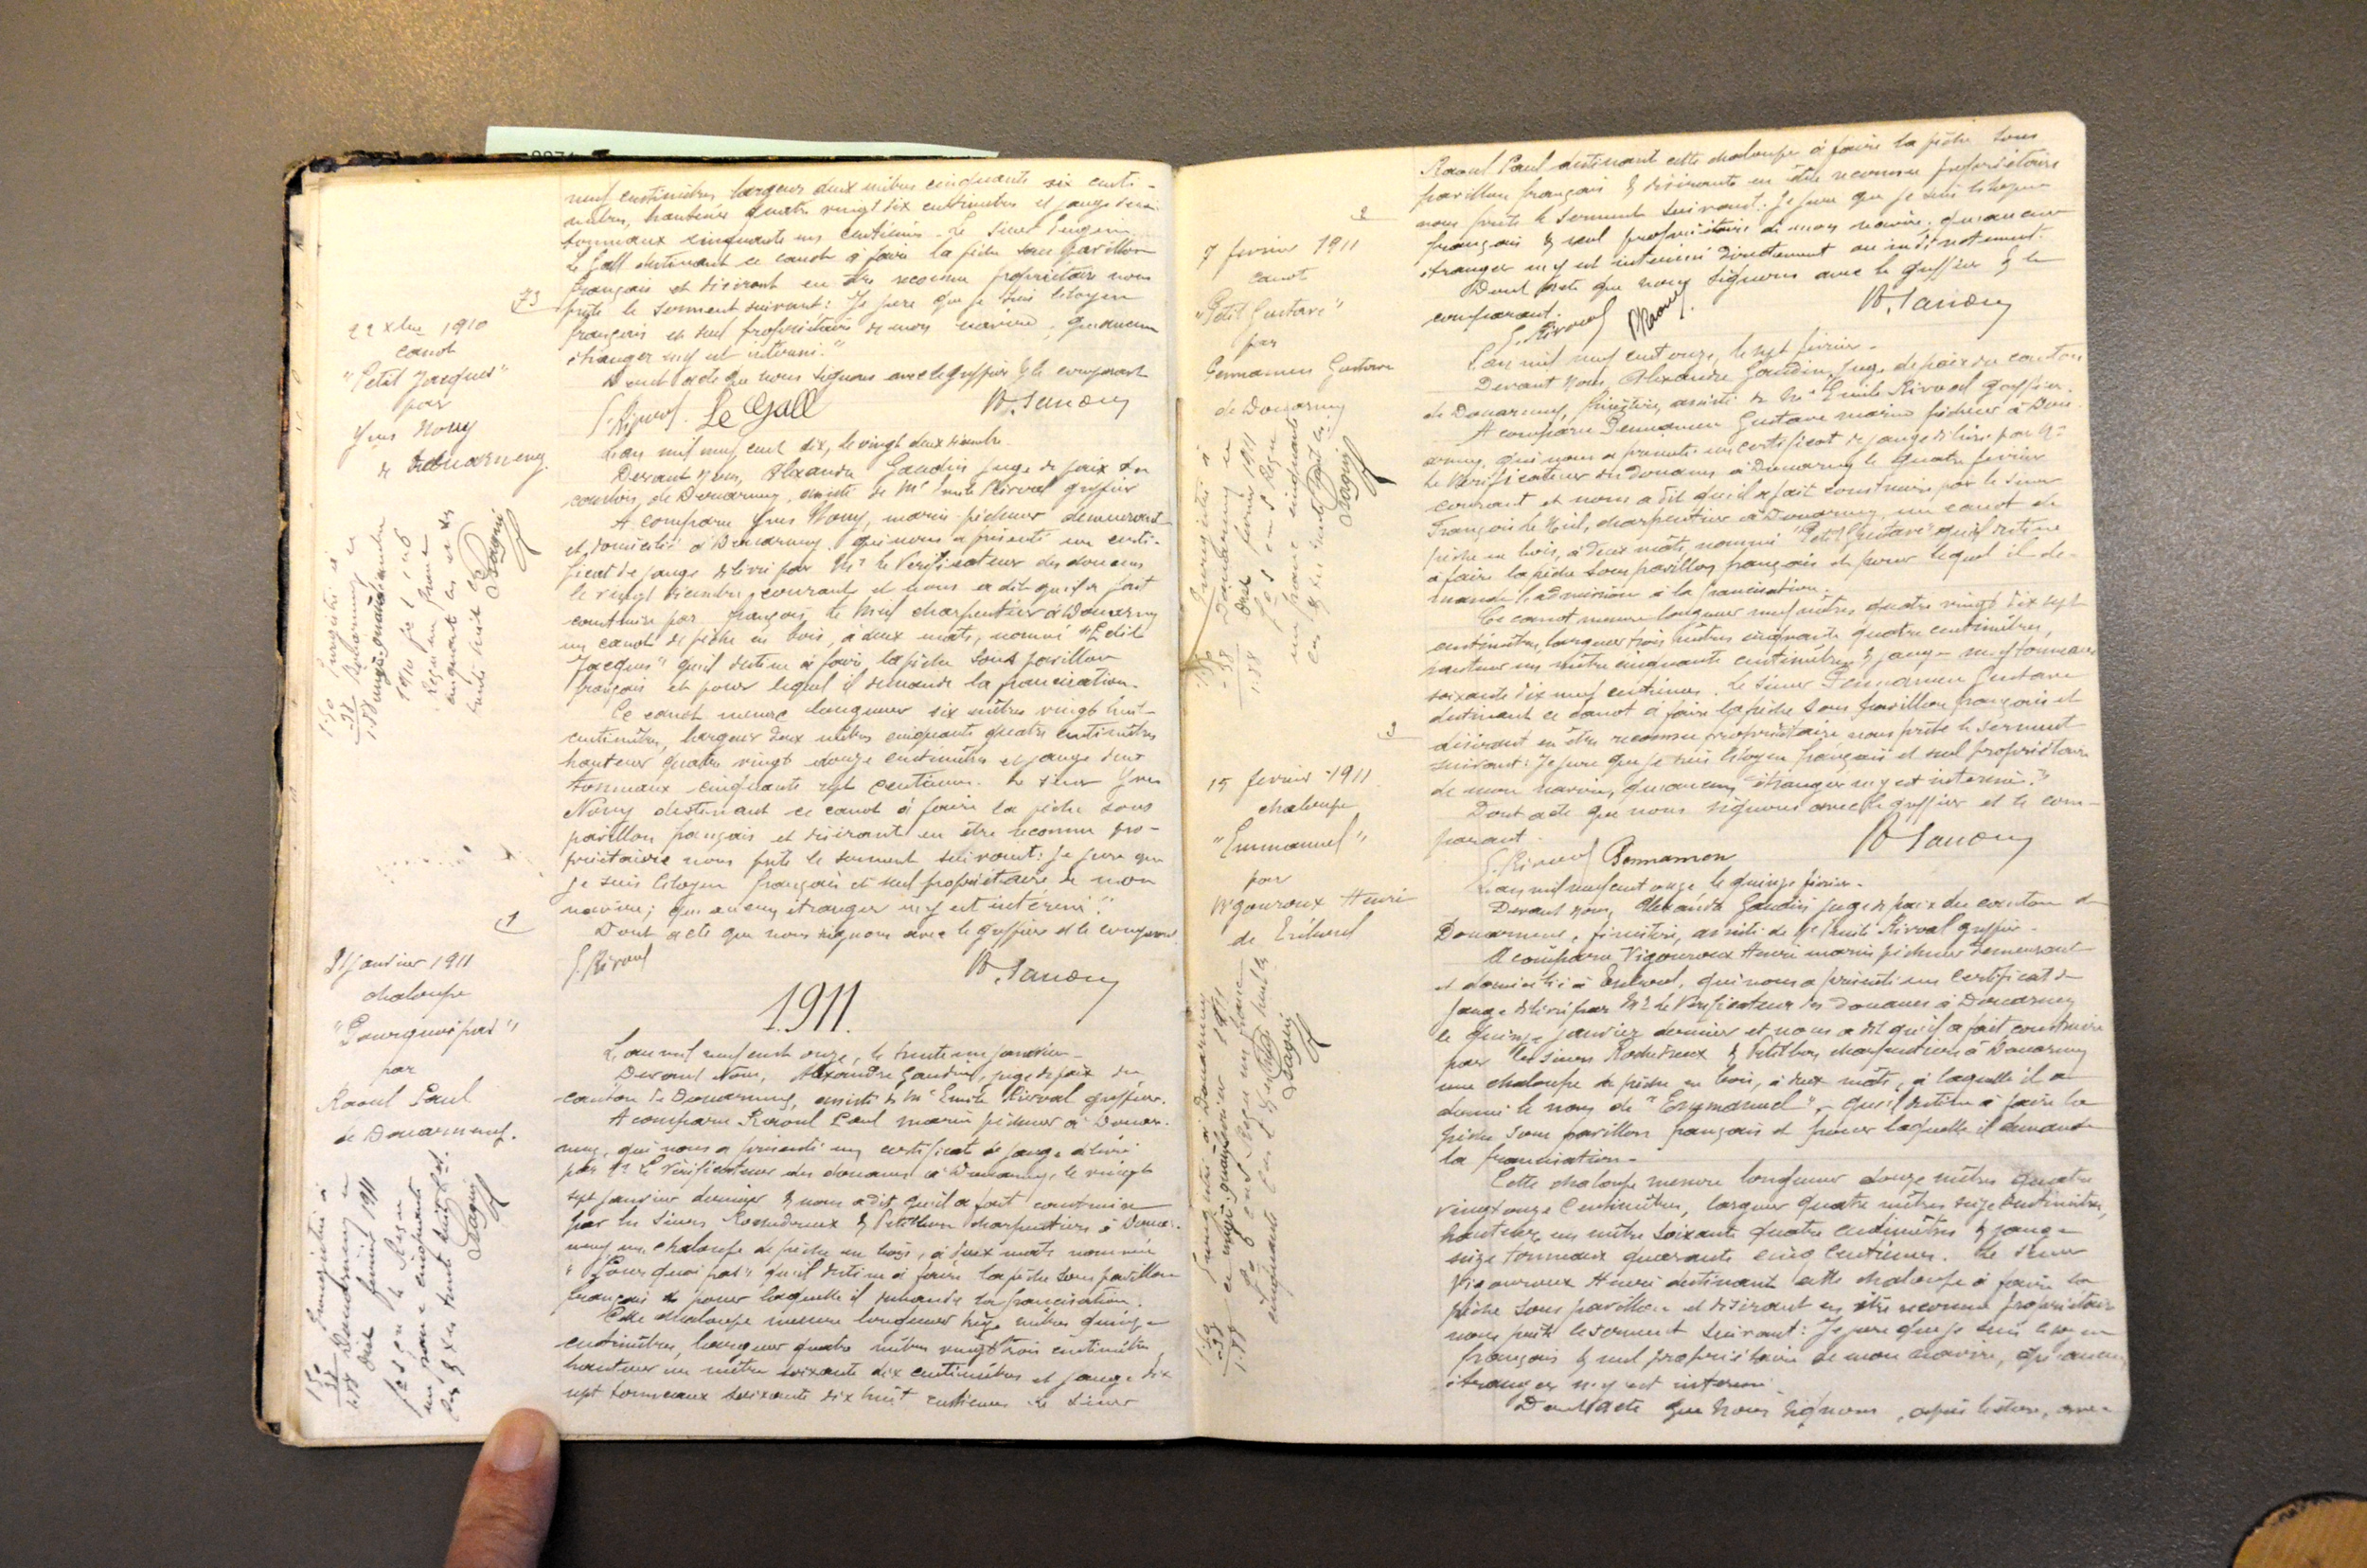 neuf centimètres, largeur deux mètres cinquante six centi-
mètres, hauteur quatre vingt dix centimètres et jauge deux
tonneaux cinquante un centièmes. Le sieur Eugène
Le Gall destinant ce canot à faire la pêche sous pavillon
français et désirant en être reconnu propriétaire nous
prête le serment suivant: Je jure que je suis citoyen
français et seul propriétaire de mon navire, qu'aucun
étranger n'y est intervenu."
Dont acte que nous signons avec le greffier & le comparant
Le Gall
73
22 Xbre 1910
canot
"Petit Jacques"
par
Yves Nouy
de Douarnenez
L'an mil neuf cent dix, le vingt deux décembre.
Devant Nous, Alexandre Gaudin juge de paix du
canton de Douarnenez, assisté de Me Emile Rivoal greffier
A comparu Yves Nouy, marin-pêcheur demeurant
et domicilié à Douarnenez, qui nous a présenté un certi-
ficat de jauge délivré par Mr le Vérificateur des douanes
le vingt décembre courant et nous a dit qu'il a fait
construire par François le Neuf charpentier à Douarnenez
un canot de pêche en bois, à deux mâts, nommé "Petit
Jacques" qu'il destine à faire la pêche sous pavillon
français et pour lequel il demande la francisation.
Ce canot mesure longueur six mètres vingt huit
centimètres, largeur deux mètres cinquante quatre centimètres
hauteur quatre vingt douze centimètres et jauge deux
tonneaux cinquante sept centièmes. Le sieur Yves
Nouy destinant ce canot à faire la pêche sous
pavillon français et désirant en être reconnu pro-
priétaire nous prête le serment suivant: Je jure que
je suis citoyen français et seul propriétaire de mon
navire; qu'aucun étranger n'y est intervenu."
Dont acte que nous signons avec le greffier et le comparant.
E. Rivoal
1911.
1
31 janvier 1911
chaloupe
"Pourquoi pas"
par
Raoul Paul
de Douarnenez.
L'an mil neuf cent onze, le trente un janvier.
Devant Nous, Alexandre Gaudin, juge de paix du
canton de Douarnenez, assisté de Me Emile Rivoal greffier.
A comparu Raoul Paul marin pêcheur à Douar-
nenez, qui nous a présenté un certificat de jauge délivré
par Mr Le Vérificateur des douanes à Douarnenez, le vingt
sept janvier dernier & nous a dit qu'il a fait construire
par les sieurs Rochedreux & Petitbon charpentiers à Douar-
nenez une chaloupe de pêche en bois, à deux mâts nommée
"Pourquoi pas" qu'il destine à faire la pêche sous pavillon
français & pour laquelle il demande la francisation.
Cette chaloupe mesure longueur treize mètres quinze
centimètres, largeur quatre mètres vingt trois centimètres
hauteur un mètre soixante dix centimètres et jauge dix
sept tonneaux soixante dix huit centièmes. Le sieur
Raoul Paul destinant cette chaloupe à faire la pêche sous
pavillon français & désirant en être reconnu propriétaire
nous prête le serment suivant: Je jure que je suis citoyen
français & seul propriétaire de mon navire; qu'aucun
étranger n'y est intervenu directement ou indirectement.
Dont acte que nous signons avec le greffier & le
comparant.
E. Rivoal PRaoul
2
7 février 1911
canot
"Petit Gustave"
par
Pennamen Gustave
de Douarnenez
L'an mil neuf cent onze, le sept février.
Devant Nous, Alexandre Gaudin, juge de paix du canton
de Douarnenez, finistère, assisté de Me Emile Rivoal greffier.
A comparu Pennamen Gustave marin pêcheur à Dou-
arnenez, qui nous a présenté un certificat de jauge délivré par Mr
le Vérificateur des Douanes à Douarnenez le quatre février
courant et nous a dit qu'il a fait construire par le sieur
François le Neuf, charpentier à Douarnenez, un canot de
pêche en bois, à deux mâts, nommé "Petit Gustave" qu'il destine
à faire la pêche sous pavillon français et pour lequel il de-
mande l'admission à la francisation.
Ce canot mesure longueur neuf mètres quatre vingt dix sept
centimètres, largeur trois mètres cinquante quatre centimètres,
hauteur un mètre cinquante centimètres & jauge neuf tonneaux
soixante dix neuf centièmes. Le sieur Pennamen Gustave
destinant ce canot à faire la pêche sous pavillon français et
désirant en être reconnu propriétaire nous prête le serment
suivant: Je jure que je suis citoyen français et seul propriétaire
de mon navire, qu'aucun étranger n'y est intervenu."
Dont acte que nous signons avec le greffier et le com-
parant.
E. Rivoal Pennamen
3
15 février 1911
chaloupe
"Emmanuel"
par
Vigouroux Henri
de Tréboul
L'an mil neuf cent onze le quinze février.
Devant Nous, Alexandre Gaudin juge de paix du canton de
Douarnenez, finistère, assisté de Me Emile Rivoal greffier.
A comparu Vigouroux Henri marin pêcheur demeurant
et domicilié à Tréboul, qui nous a présenté un certificat de
jauge délivré par Mr le Vérificateur des douanes à Douarnenez
le quinze janvier dernier et nous a dit qu'il a fait construire
par les sieurs Rochedreux & Petitbon charpentiers à Douarnenez
une chaloupe de pêche en bois, à deux mâts, à laquelle il a
donné le nom de "Emmanuel", qu'il destine à faire la
pêche sous pavillon français et pour laquelle il demande
la francisation.
Cette chaloupe mesure longueur douze mètres quatre
vingt onze centimètres, largeur quatre mètres seize centimètres,
hauteur un mètre soixante quatre centimètres & jauge
seize tonneaux quarante cinq centièmes. Le sieur
Vigouroux Henri destinant cette chaloupe à faire la
pêche sous pavillon et désirant en être reconnu propriétaire
nous prête le serment suivant: Je jure que je suis citoyen
français & seul propriétaire de mon navire, qu'aucun
étranger n'y est intervenu.
Dont acte que Nous signons, après lecture, avec